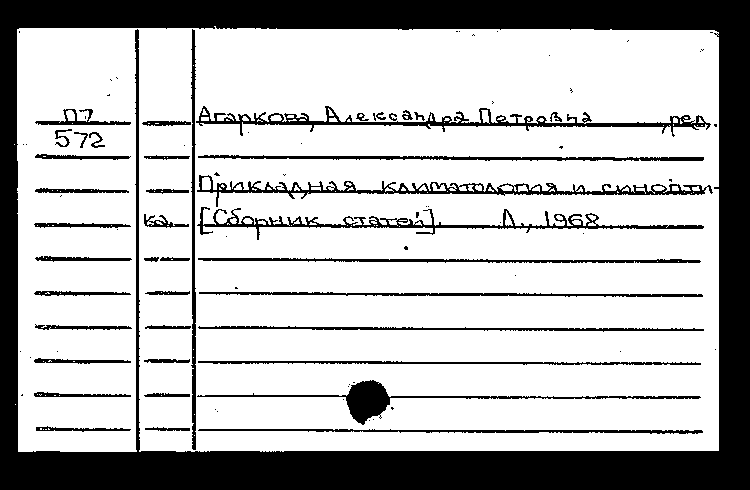 П7
572
Агаркова, Александра Петровна , ред.
Прикладная климатология и синопти-
ка. [Сборник статей]. Л., 1968